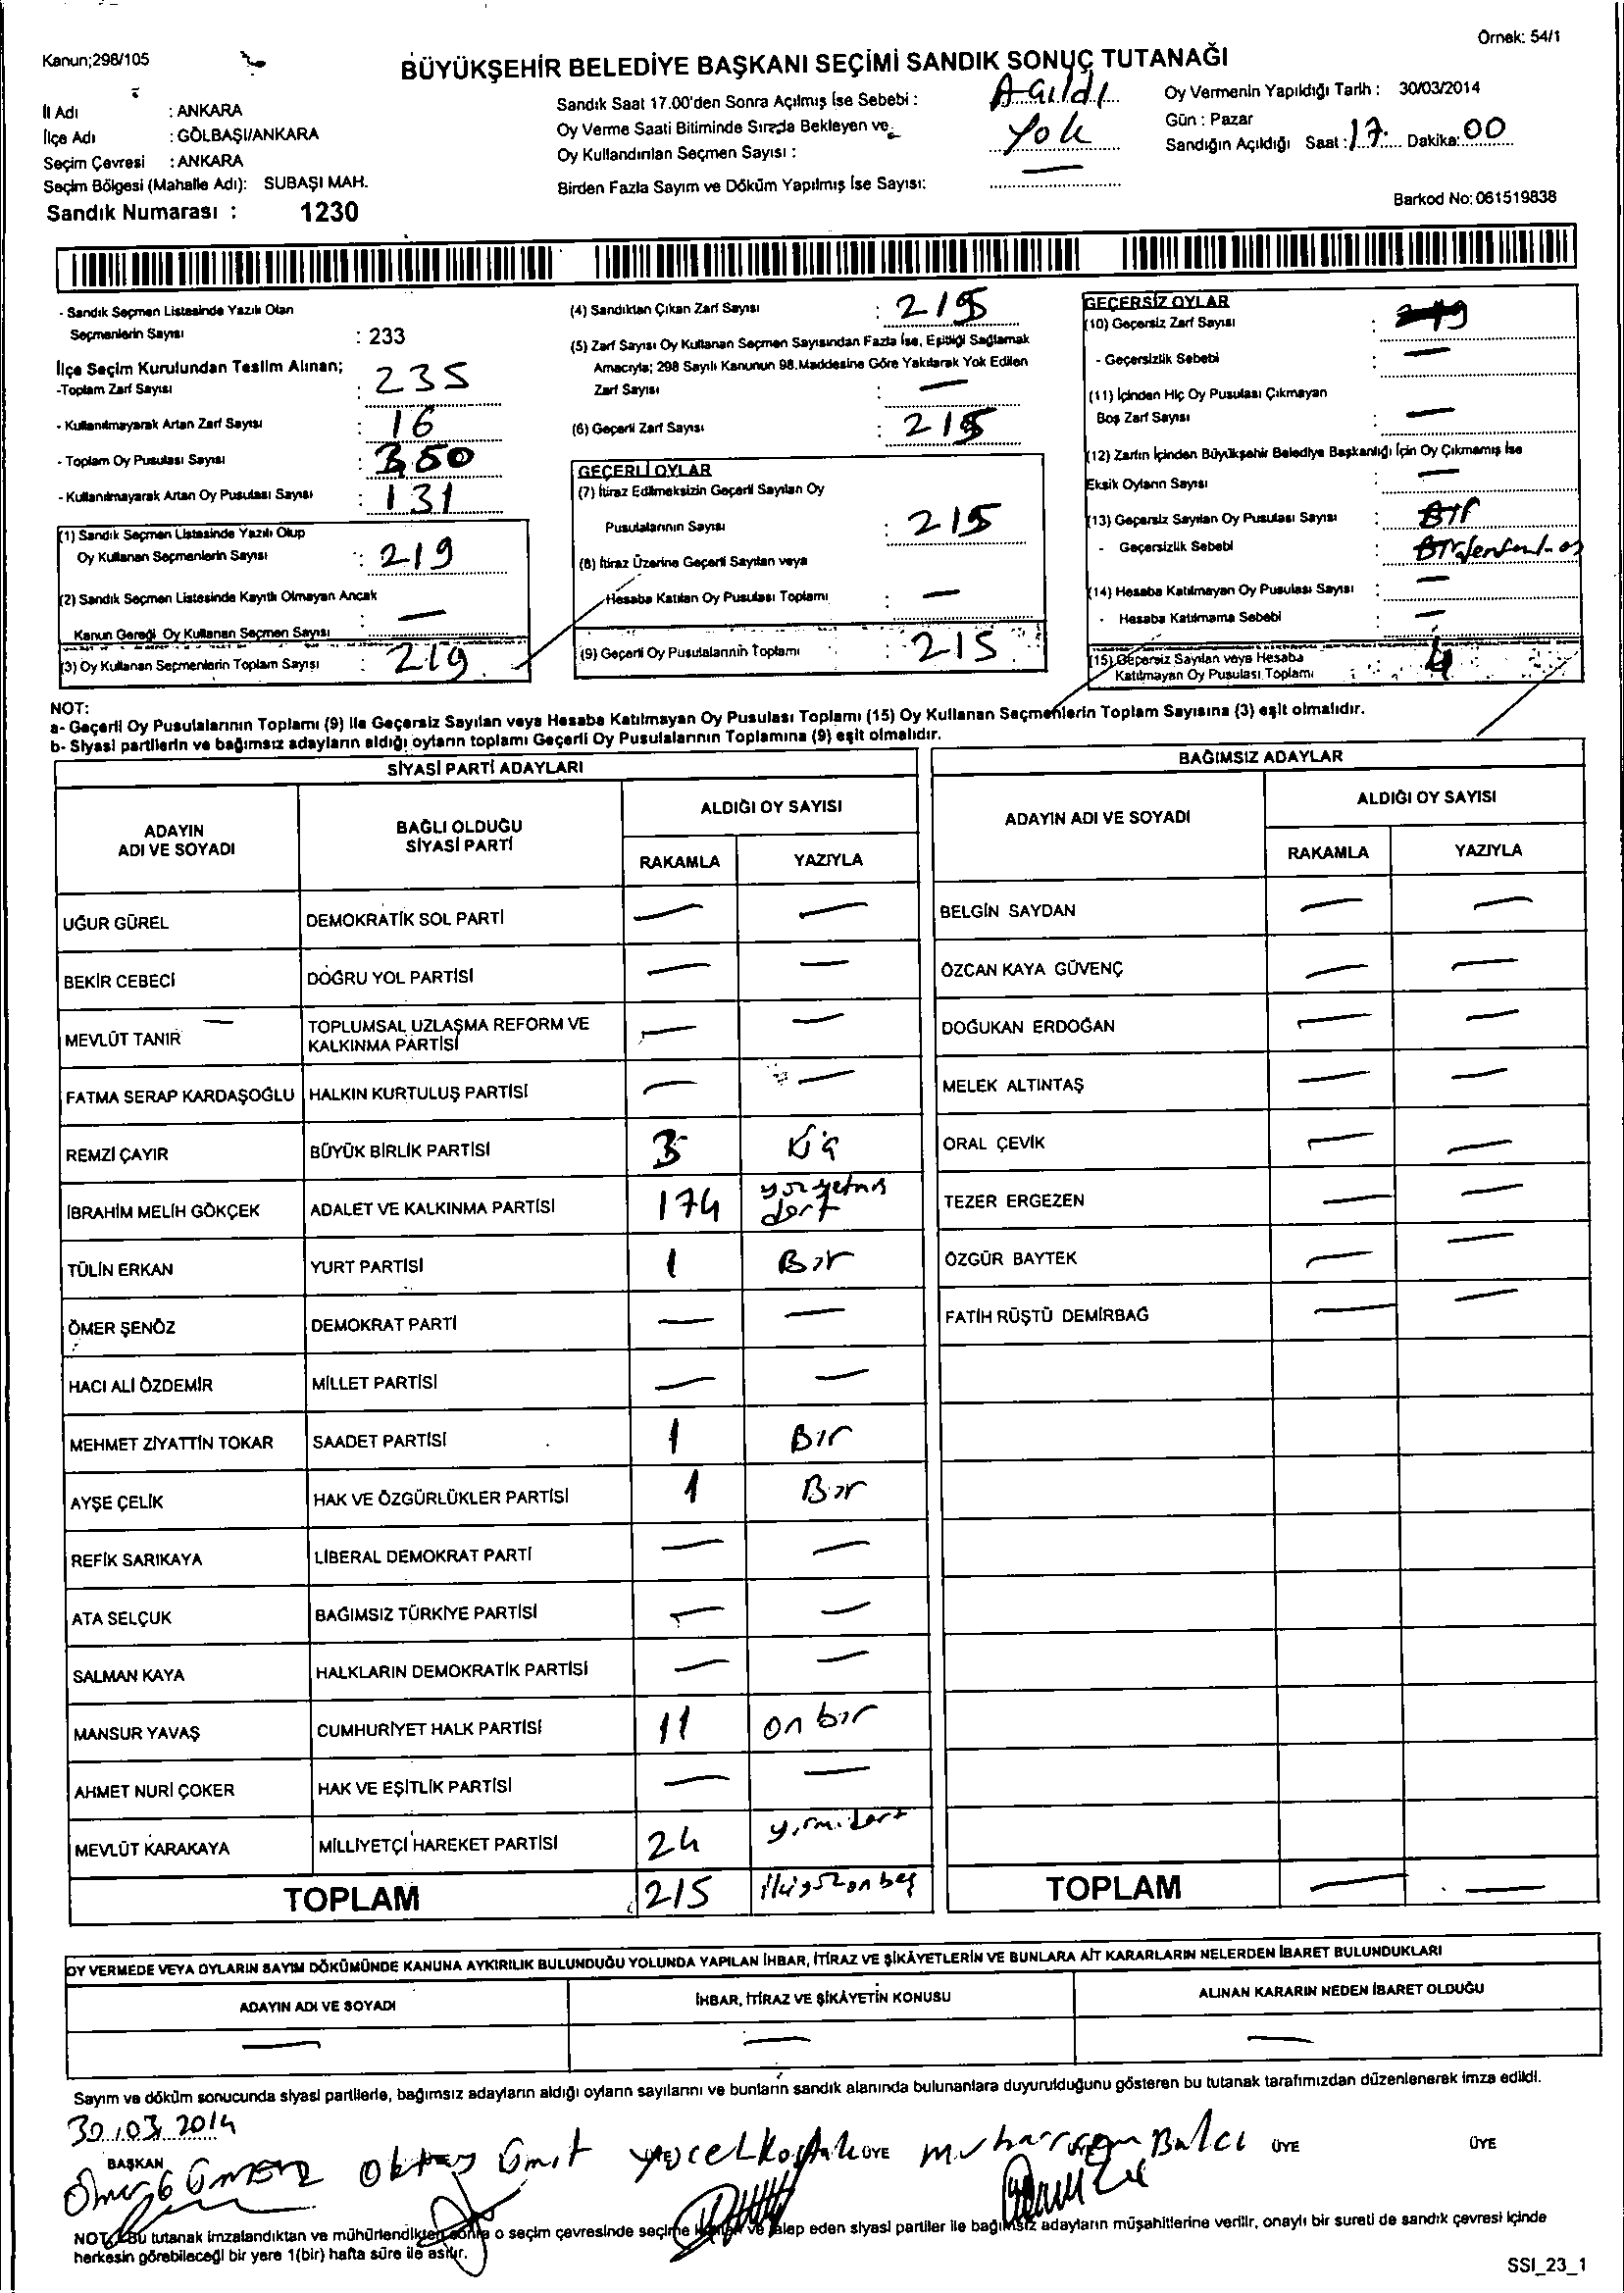 Kanun;298/105
Örnek: 54/1
BÜYÜKŞEHİR BELEDİYE BAŞKANI SEÇİMİ SANDIK SONUÇ TUTANAĞI
İl Adı : ANKARA
İlçe Adı : GÖLBAŞI/ANKARA
Seçim Çevresi : ANKARA
Seçim Bölgesi (Mahalle Adı): SUBAŞI MAH.
Sandık Numarası : 1230
Sandık Saat 17.00'den Sonra Açılmış İse Sebebi : Açıldı
Oy Verme Saati Bitiminde Sırada Bekleyen ve
Oy Kullandırılan Seçmen Sayısı : Yok
Birden Fazla Sayım ve Döküm Yapılmış İse Sayısı: —
Oy Vermenin Yapıldığı Tarih : 30/03/2014
Gün : Pazar
Sandığın Açıldığı Saat : 17 Dakika: 00
Barkod No: 061519838
- Sandık Seçmen Listesinde Yazılı Olan
Seçmenlerin Sayısı : 233
İlçe Seçim Kurulundan Teslim Alınan;
-Toplam Zarf Sayısı : 235
- Kullanılmayarak Artan Zarf Sayısı : 16
- Toplam Oy Pusulası Sayısı : 350
- Kullanılmayarak Artan Oy Pusulası Sayısı : 131
(1) Sandık Seçmen Listesinde Yazılı Olup
Oy Kullanan Seçmenlerin Sayısı : 219
(2) Sandık Seçmen Listesinde Kayıtlı Olmayan Ancak
Kanun Gereği Oy Kullanan Seçmen Sayısı —
(3) Oy Kullanan Seçmenlerin Toplam Sayısı : 219
(4) Sandıktan Çıkan Zarf Sayısı : 215
(5) Zarf Sayısı Oy Kullanan Seçmen Sayısından Fazla İse, Eşitliği Sağlamak
Amacıyla; 298 Sayılı Kanunun 98.Maddesine Göre Yakılarak Yok Edilen
Zarf Sayısı : —
(6) Geçerli Zarf Sayısı : 215
GEÇERLİ OYLAR
(7) İtiraz Edilmeksizin Geçerli Sayılan Oy
Pusulalarının Sayısı : 215
(8) İtiraz Üzerine Geçerli Sayılan veya
Hesaba Katılan Oy Pusulası Toplamı : —
(9) Geçerli Oy Pusulalarının Toplamı : 215
GEÇERSİZ OYLAR
(10) Geçersiz Zarf Sayısı :
- Geçersizlik Sebebi : —
(11) İçinden Hiç Oy Pusulası Çıkmayan
Boş Zarf Sayısı : —
(12) Zarfın İçinden Büyükşehir Belediye Başkanlığı İçin Oy Çıkmamış İse
Eksik Oyların Sayısı : —
(13) Geçersiz Sayılan Oy Pusulası Sayısı :
- Geçersizlik Sebebi :
(14) Hesaba Katılmayan Oy Pusulası Sayısı : —
- Hesaba Katılmama Sebebi : —
(15) Geçersiz Sayılan veya Hesaba
Katılmayan Oy Pusulası Toplamı : 4
NOT:
a- Geçerli Oy Pusulalarının Toplamı (9) ile Geçersiz Sayılan veya Hesaba Katılmayan Oy Pusulası Toplamı (15) Oy Kullanan Seçmenlerin Toplam Sayısına (3) eşit olmalıdır.
b- Siyasi partilerin ve bağımsız adayların aldığı oyların toplamı Geçerli Oy Pusulalarının Toplamına (9) eşit olmalıdır.
SİYASİ PARTİ ADAYLARI
ADAYIN ADI VE SOYADI
BAĞLI OLDUĞU SİYASİ PARTİ
ALDIĞI OY SAYISI
RAKAMLA YAZIYLA
UĞUR GÜREL DEMOKRATİK SOL PARTİ — —
BEKİR CEBECİ DOĞRU YOL PARTİSİ — —
MEVLÜT TANIR TOPLUMSAL UZLAŞMA REFORM VE KALKINMA PARTİSİ — —
FATMA SERAP KARDAŞOĞLU HALKIN KURTULUŞ PARTİSİ — —
REMZİ ÇAYIR BÜYÜK BİRLİK PARTİSİ 3 Üç
İBRAHİM MELİH GÖKÇEK ADALET VE KALKINMA PARTİSİ 174 yüzyetmiş dört
TÜLİN ERKAN YURT PARTİSİ 1 Bir
ÖMER ŞENÖZ DEMOKRAT PARTİ — —
HACI ALİ ÖZDEMİR MİLLET PARTİSİ — —
MEHMET ZİYATTİN TOKAR SAADET PARTİSİ 1 Bir
AYŞE ÇELİK HAK VE ÖZGÜRLÜKLER PARTİSİ 1 Bir
REFİK SARIKAYA LİBERAL DEMOKRAT PARTİ — —
ATA SELÇUK BAĞIMSIZ TÜRKİYE PARTİSİ — —
SALMAN KAYA HALKLARIN DEMOKRATİK PARTİSİ — —
MANSUR YAVAŞ CUMHURİYET HALK PARTİSİ 11 on bir
AHMET NURİ ÇOKER HAK VE EŞİTLİK PARTİSİ — —
MEVLÜT KARAKAYA MİLLİYETÇİ HAREKET PARTİSİ 24 yirmidört
TOPLAM 215 ikiyüzonbeş
BAĞIMSIZ ADAYLAR
ADAYIN ADI VE SOYADI
ALDIĞI OY SAYISI
RAKAMLA YAZIYLA
BELGİN SAYDAN — —
ÖZCAN KAYA GÜVENÇ — —
DOĞUKAN ERDOĞAN — —
MELEK ALTINTAŞ — —
ORAL ÇEVİK — —
TEZER ERGEZEN — —
ÖZGÜR BAYTEK — —
FATİH RÜŞTÜ DEMİRBAĞ — —
TOPLAM — —
OY VERMEDE VEYA OYLARIN SAYIM DÖKÜMÜNDE KANUNA AYKIRILIK BULUNDUĞU YOLUNDA YAPILAN İHBAR, İTİRAZ VE ŞİKÂYETLERİN VE BUNLARA AİT KARARLARIN NELERDEN İBARET BULUNDUKLARI
ADAYIN ADI VE SOYADI İHBAR, İTİRAZ VE ŞİKÂYETİN KONUSU ALINAN KARARIN NEDEN İBARET OLDUĞU
— — —
Sayım ve döküm sonucunda siyasi partilerle, bağımsız adayların aldığı oyların sayılarını ve bunların sandık alanında bulunanlara duyurulduğunu gösteren bu tutanak tarafımızdan düzenlenerek imza edildi.
30.03.2014
BAŞKAN ÜYE ÜYE ÜYE
Oktay Ümit Muharrem Balcı
NOT: Bu tutanak imzalandıktan ve mühürlendikten sonra o seçim çevresinde seçime katılan ve talep eden siyasi partiler ile bağımsız adayların müşahitlerine verilir, onaylı bir sureti de sandık çevresi içinde
herkesin görebileceği bir yere 1(bir) hafta süre ile asılır.
SSI_23_1